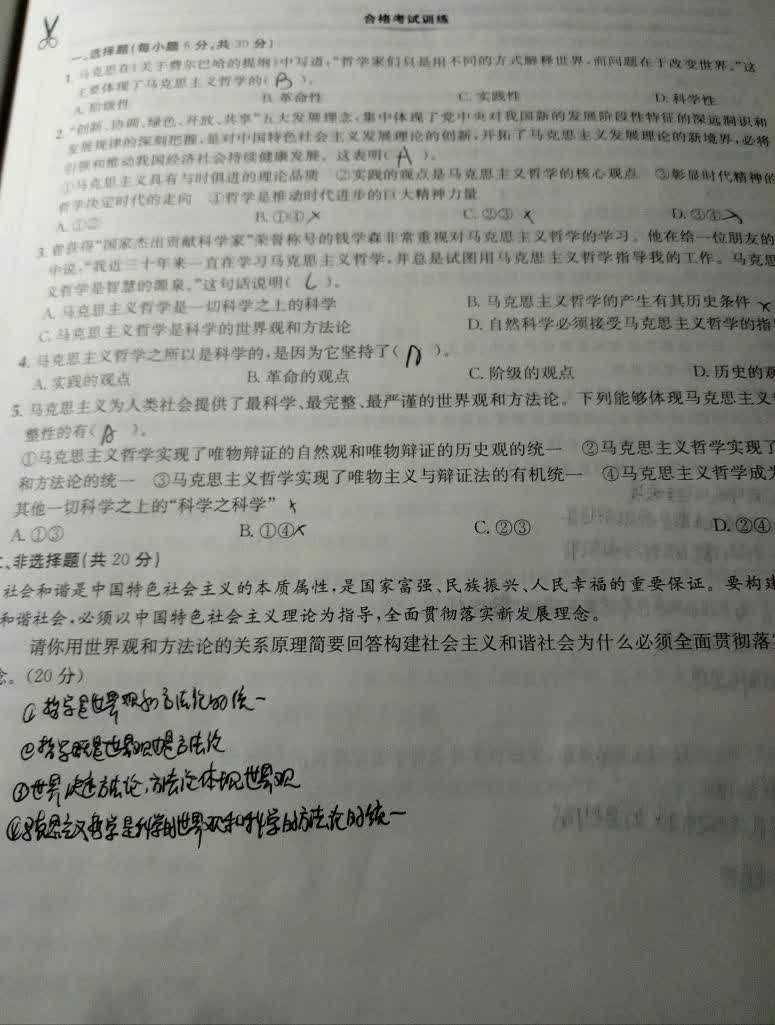 合格考试训练
一、选择题(每小题6分,共30分)
1.马克思在《关于费尔巴哈的提纲》中写道:“哲学家们只是用不同的方式解释世界,而问题在于改变世界。”这
主要体现了马克思主义哲学的( B )。
A.阶级性 B.革命性 C.实践性 D.科学性
2.“创新、协调、绿色、开放、共享”五大发展理念,集中体现了党中央对我国新的发展阶段性特征的深远洞识和
发展规律的深刻把握,是对中国特色社会主义发展理论的创新,开拓了马克思主义发展理论的新境界,必将
引领和推动我国经济社会持续健康发展。这表明( A )。
①马克思主义具有与时俱进的理论品质 ②实践的观点是马克思主义哲学的核心观点 ③彰显时代精神的
哲学决定时代的走向 ④哲学是推动时代进步的巨大精神力量
A.①② B.①④ × C.②③ × D.③④ ×
3.曾获得“国家杰出贡献科学家”荣誉称号的钱学森非常重视对马克思主义哲学的学习。他在给一位朋友的
中说:“我近三十年来一直在学习马克思主义哲学,并总是试图用马克思主义哲学指导我的工作。马克思
义哲学是智慧的源泉。”这句话说明( C )。
A.马克思主义哲学是一切科学之上的科学 B.马克思主义哲学的产生有其历史条件 ×
C.马克思主义哲学是科学的世界观和方法论 D.自然科学必须接受马克思主义哲学的指
4.马克思主义哲学之所以是科学的,是因为它坚持了( )。
A.实践的观点 B.革命的观点 C.阶级的观点 D.历史的
5.马克思主义为人类社会提供了最科学、最完整、最严谨的世界观和方法论。下列能够体现马克思主义
整性的有( )。
①马克思主义哲学实现了唯物辩证的自然观和唯物辩证的历史观的统一 ②马克思主义哲学实现了
和方法论的统一 ③马克思主义哲学实现了唯物主义与辩证法的有机统一 ④马克思主义哲学成为
其他一切科学之上的“科学之科学” ×
A.①③ B.①④ × C.②③ D.②④
二、非选择题(共20分)
社会和谐是中国特色社会主义的本质属性,是国家富强、民族振兴、人民幸福的重要保证。要构建
和谐社会,必须以中国特色社会主义理论为指导,全面贯彻落实新发展理念。
请你用世界观和方法论的关系原理简要回答构建社会主义和谐社会为什么必须全面贯彻落
念。(20分)
①哲学是世界观和方法论的统一
②哲学既是世界观也是方法论
③世界决定方法论,方法论体现世界观
④马克思主义哲学是科学的世界观和科学的方法论的统一